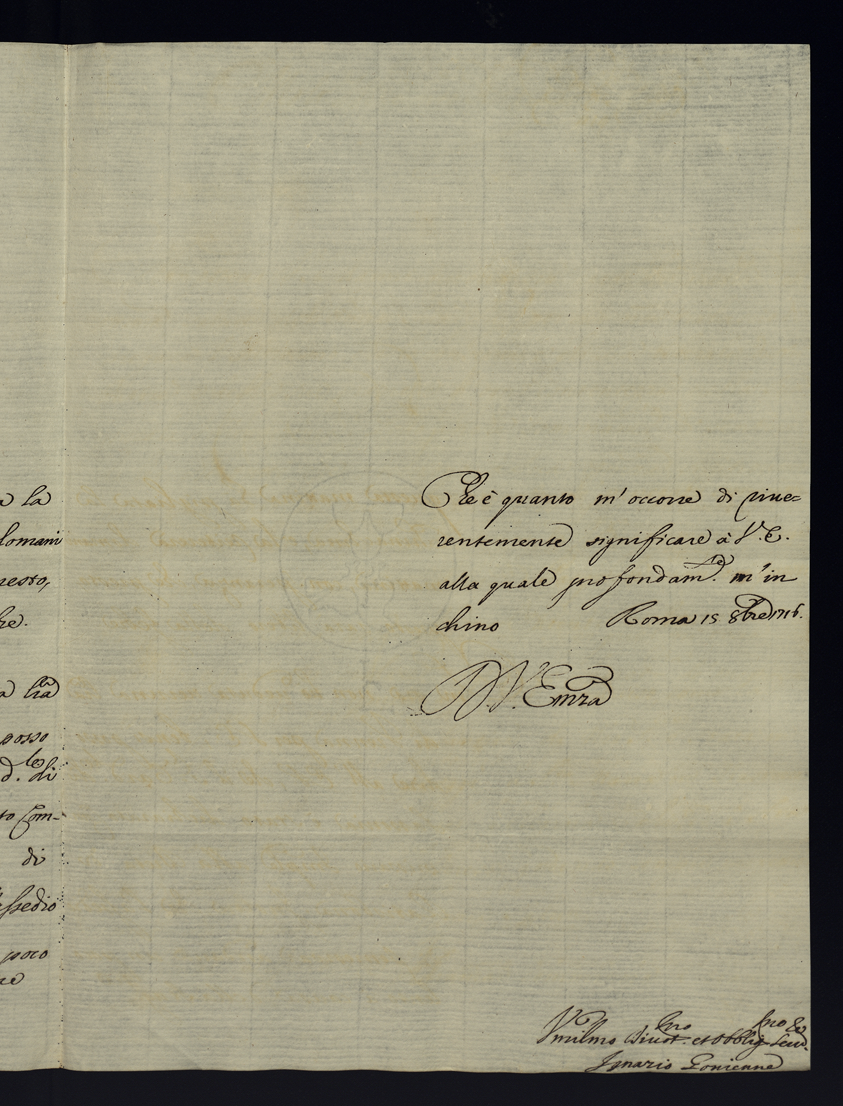 la
lomani
resto,
re.
posso
d.le di
to Com-
di
assedio
poco
Che è quanto m'occorre di riue=
rentemente significare à V. E.
alla quale profondam.te m'in
chino Roma 15 8bre 1716.
D. V. Emza
Vmilmo Diuot.mo et Obblig.mo Seru.
Ignazio